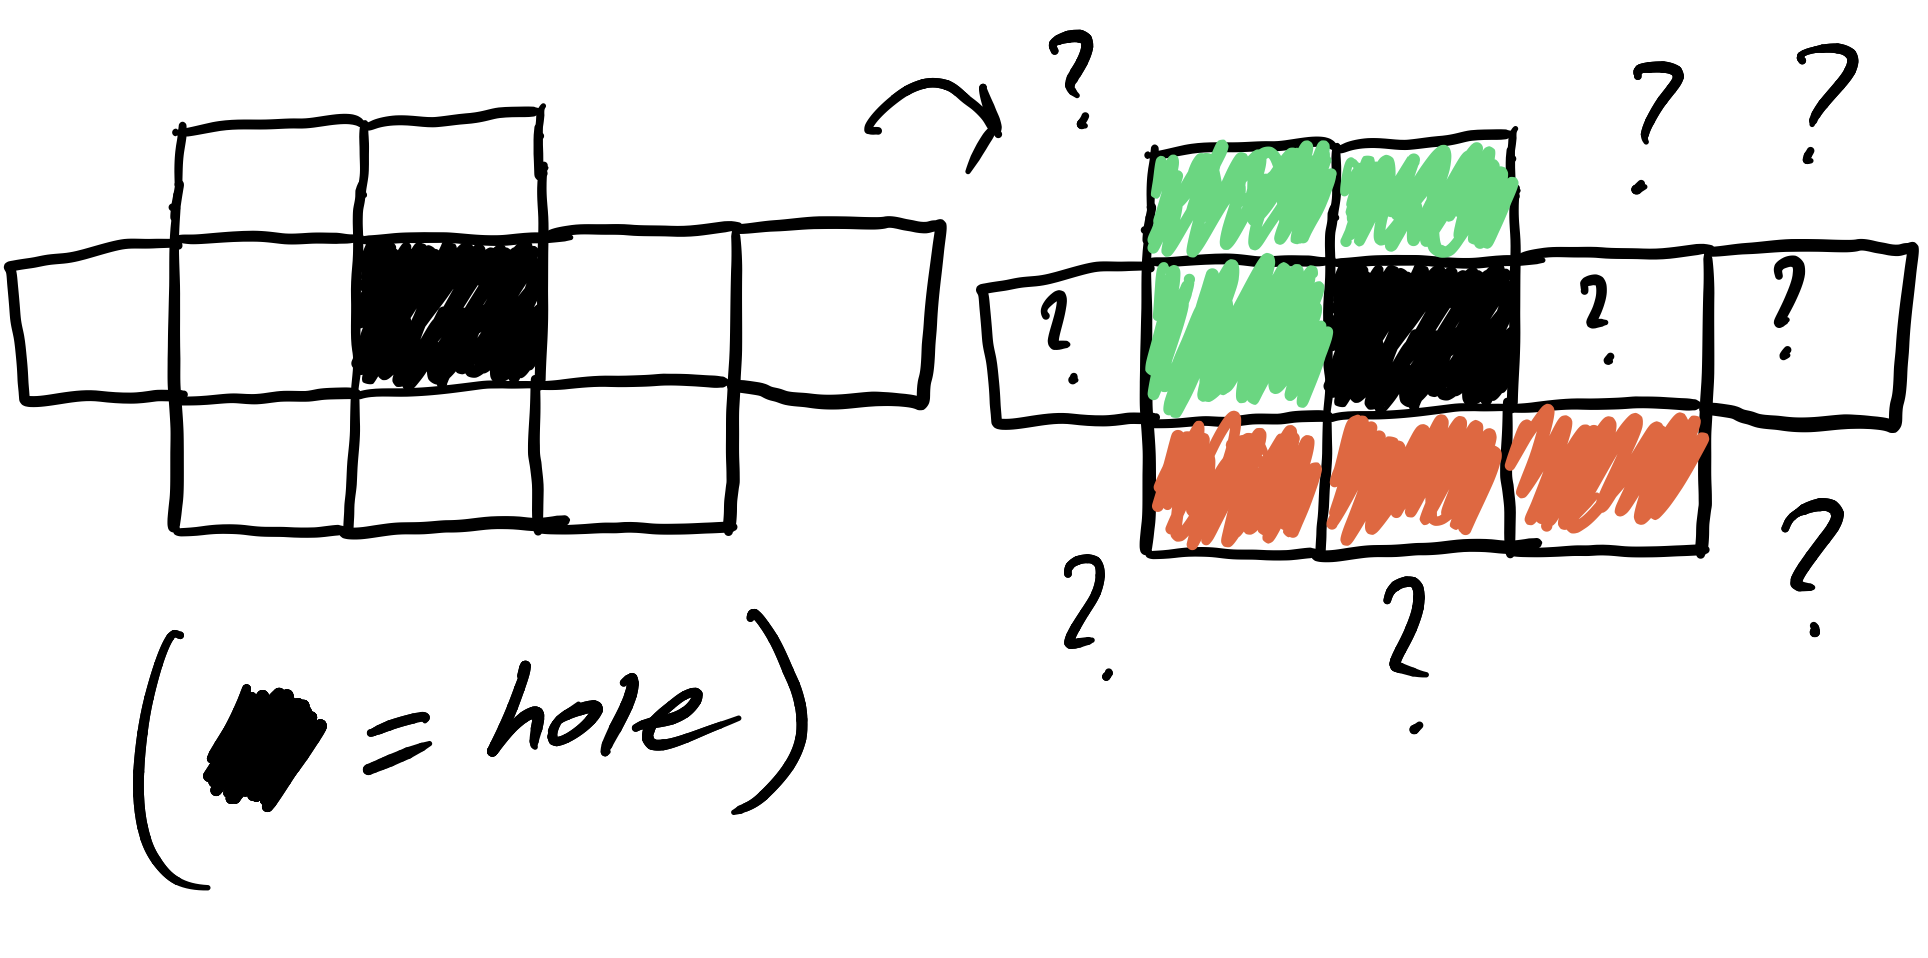 ? ? ?
? ? ?
? ? ?
( = hole)